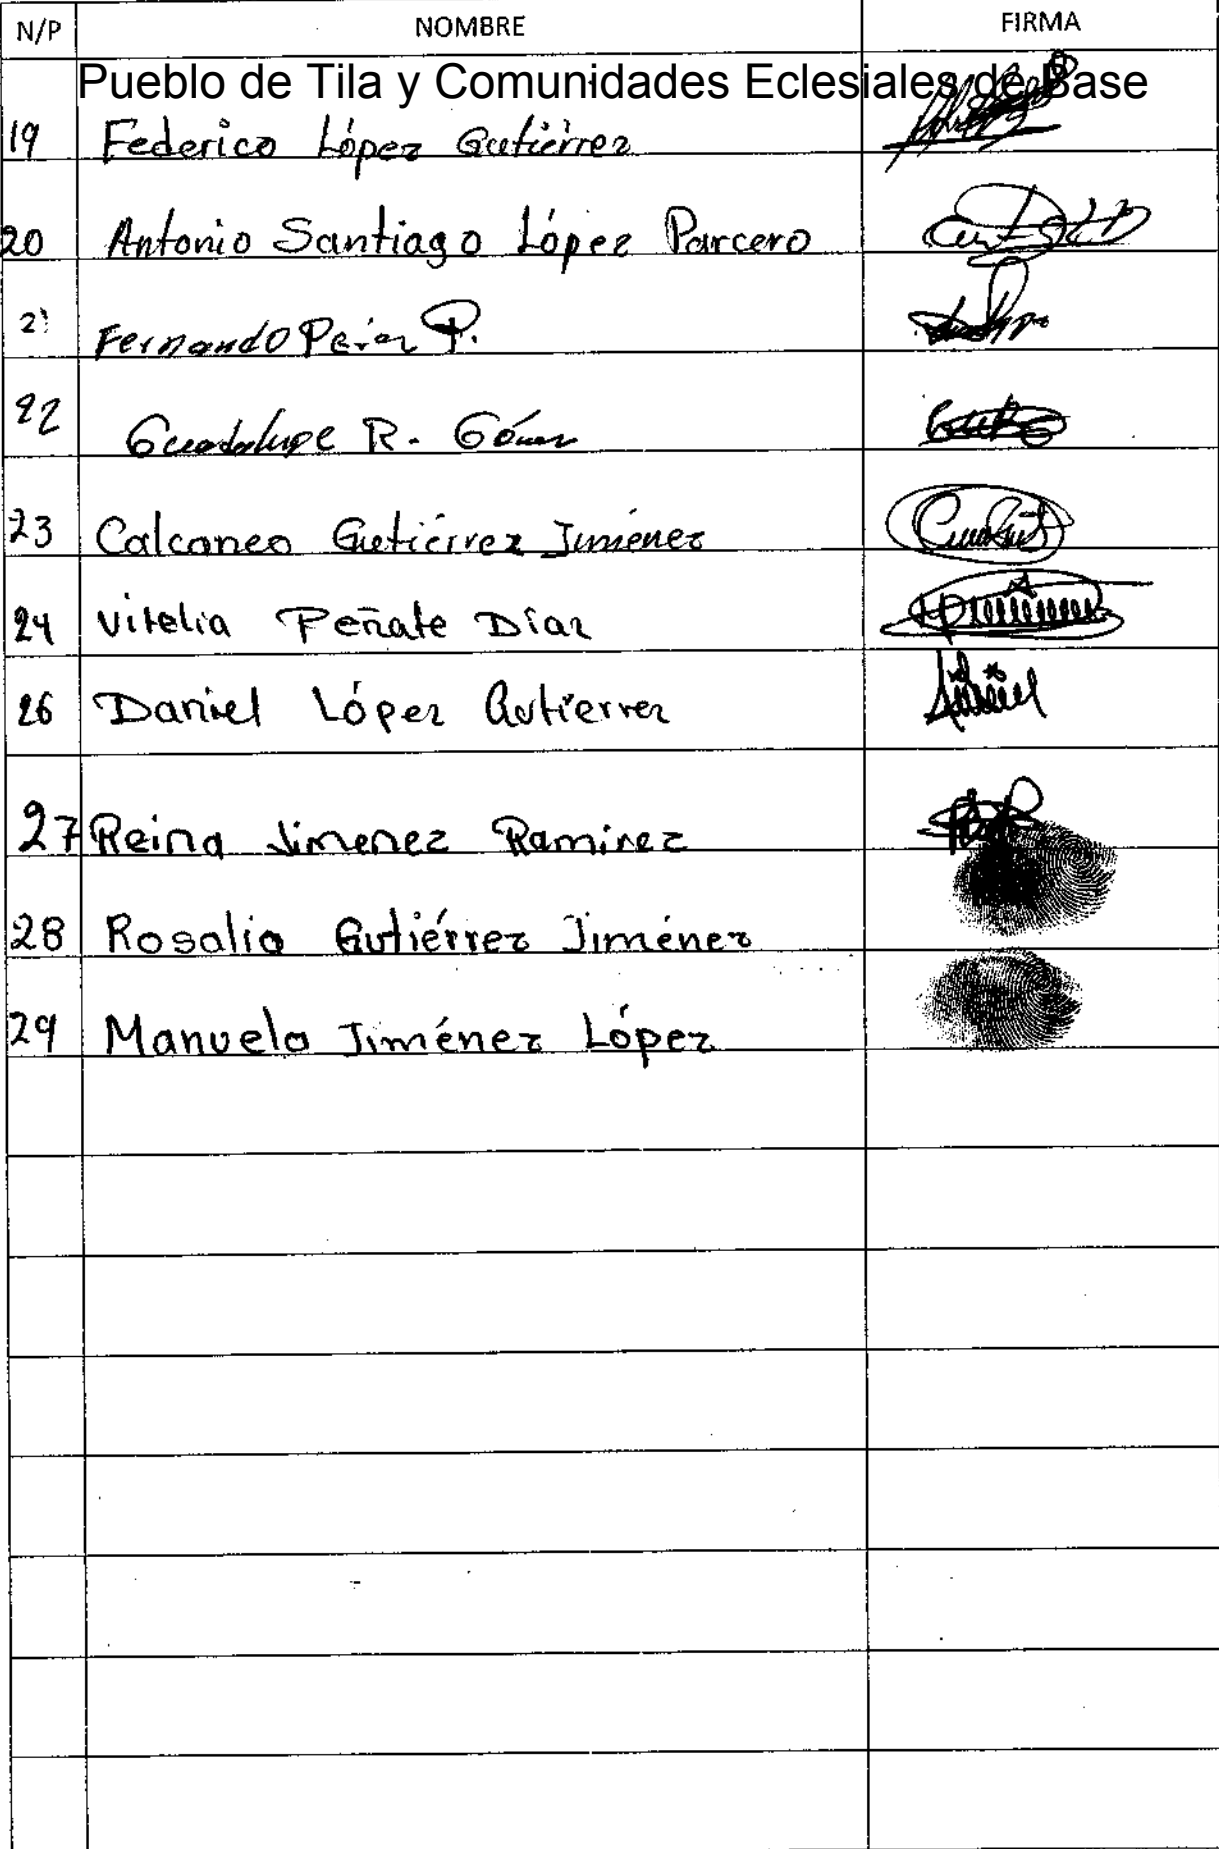 N/P NOMBRE FIRMA
Pueblo de Tila y Comunidades Eclesiales de Base
19 Federico López Gutiérrez
20 Antonio Santiago López Parcero
21 Fernando P.
22 Guadalupe R. Gómez
23 Calcaneo Gutiérrez Jiménez
24 Vitelia Peñate Díaz
26 Daniel López Gutierrez
27 Reina Jimenez Ramirez
28 Rosalia Gutiérrez Jiménez
29 Manuela Jiménez López